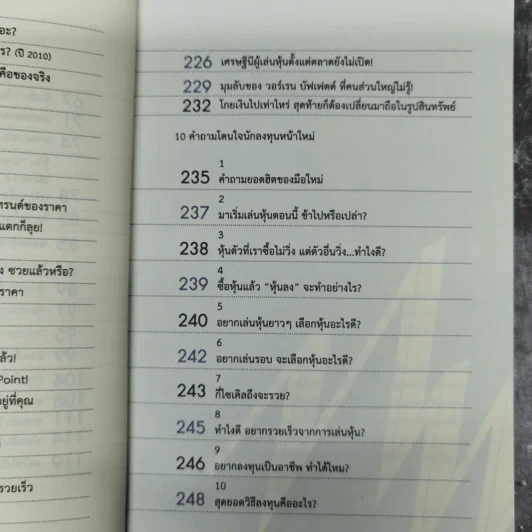 อะ?
ร? (ปี 2010)
คือของจริง
ทรนด์ของราคา
แตกก็ลุย!
ง ซวยแล้วหรือ?
ราคา
ล้ว!
Point!
อยู่ที่คุณ
รวยเร็ว
226 เศรษฐีนีผู้เล่นหุ้นตั้งแต่ตลาดยังไม่เปิด!
229 มุมลับของ วอร์เรน บัฟเฟตต์ ที่คนส่วนใหญ่ไม่รู้!
232 โกยเงินไปเท่าไหร่ สุดท้ายก็ต้องเปลี่ยนมาถือในรูปสินทรัพย์
10 คำถามโดนใจนักลงทุนหน้าใหม่
1
235 คำถามยอดฮิตของมือใหม่
2
237 มาเริ่มเล่นหุ้นตอนนี้ ช้าไปหรือเปล่า?
3
238 หุ้นตัวที่เราซื้อไม่วิ่ง แต่ตัวอื่นวิ่ง...ทำไงดี?
4
239 ซื้อหุ้นแล้ว "หุ้นลง" จะทำอย่างไร?
5
240 อยากเล่นหุ้นยาวๆ เลือกหุ้นอะไรดี?
6
242 อยากเล่นรอบ จะเลือกหุ้นอะไรดี?
7
243 กี่ไซเคิลถึงจะรวย?
8
245 ทำไงดี อยากรวยเร็วจากการเล่นหุ้น?
9
246 อยากลงทุนเป็นอาชีพ ทำได้ไหม?
10
248 สุดยอดวิธีลงทุนคืออะไร?